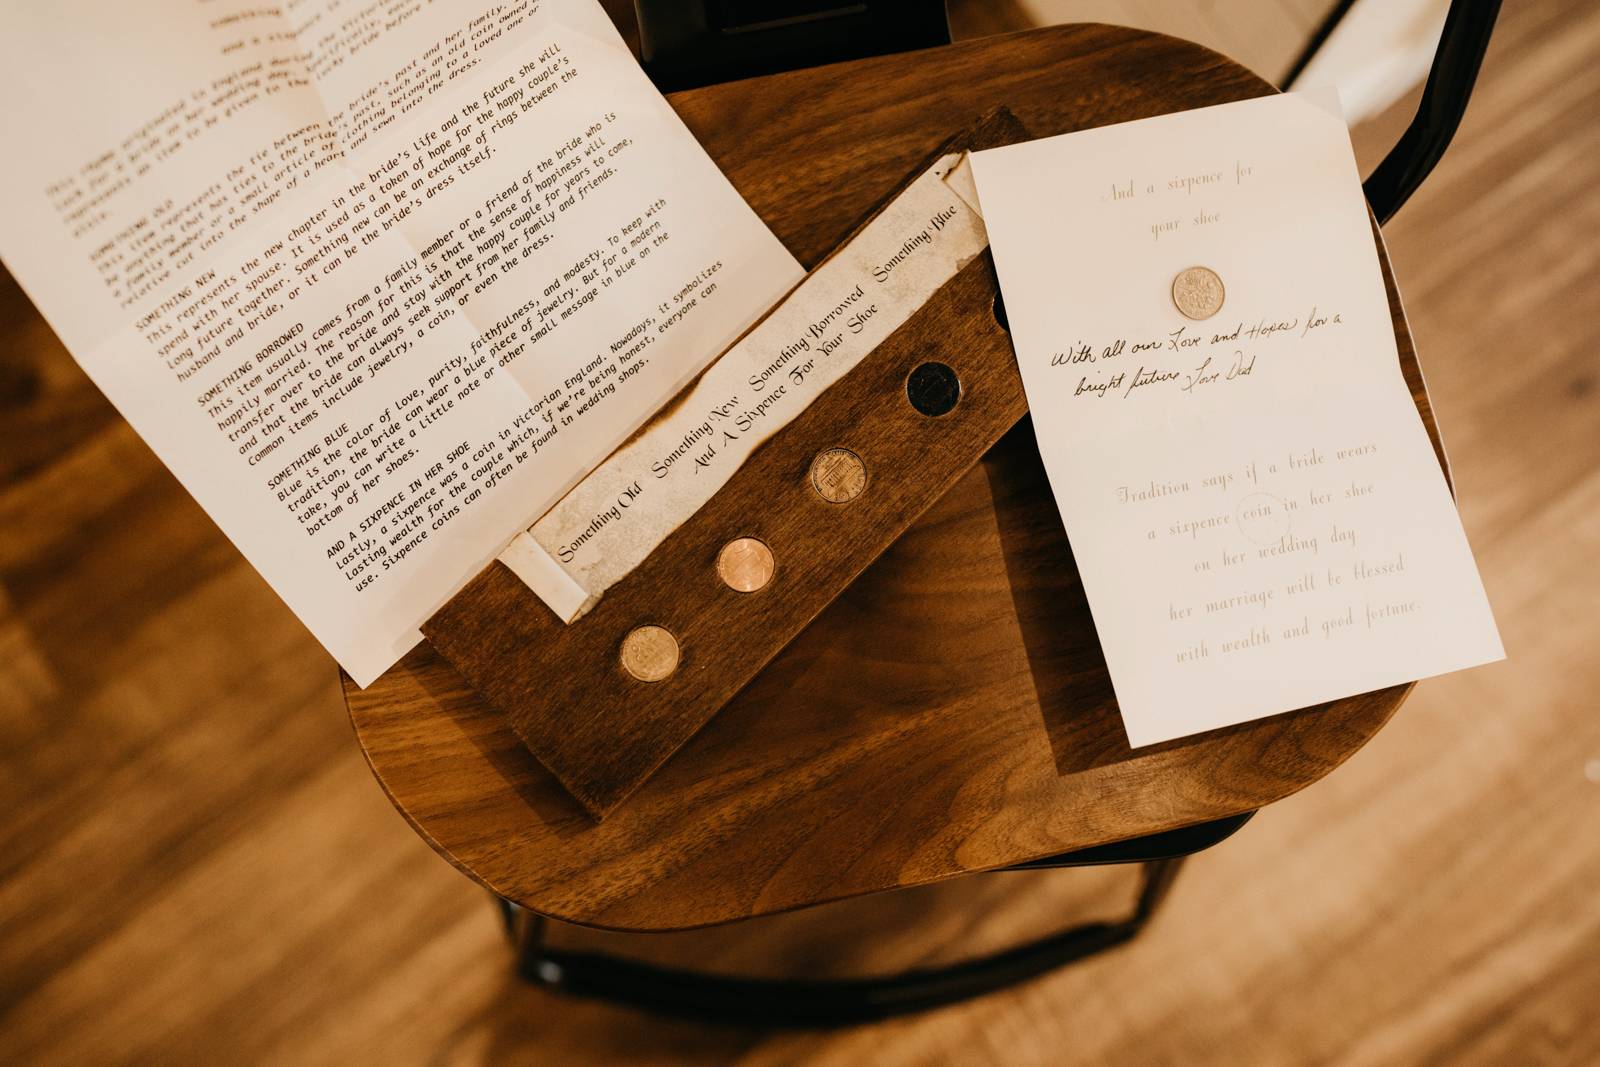 This rhyme originated in England during the Victorian
luck for a bride on her wedding day. Specifically, each
represents an item to be given to the lucky bride before
SOMETHING OLD
This item represents the tie between the bride's past and her family.
be anything that has ties to the bride's past, such as an old coin owned
a family member or a small article of clothing belonging to a loved one or
relative cut into the shape of a heart and sewn into the dress.
SOMETHING NEW
This represents the new chapter in the bride's life and the future she will
spend with her spouse. It is used as a token of hope for the happy couple's
long future together. Something new can be an exchange of rings between the
husband and bride, or it can be the bride's dress itself.
SOMETHING BORROWED
This item usually comes from a family member or a friend of the bride who is
happily married. The reason for this is that the sense of happiness will
transfer over to the bride and stay with the happy couple for years to come,
and that the bride can always seek support from her family and friends.
Common items include jewelry, a coin, or even the dress.
SOMETHING BLUE
Blue is the color of love, purity, faithfulness, and modesty. To keep with
tradition, the bride can wear a blue piece of jewelry. But for a modern
take, you can write a little note or other small message in blue on the
bottom of her shoes.
AND A SIXPENCE IN HER SHOE
Lastly, a sixpence was a coin in Victorian England. Nowadays, it symbolizes
lasting wealth for the couple which, if we're being honest, everyone can
use. Sixpence coins can often be found in wedding shops.
Something Old Something New Something Borrowed Something Blue
And A Sixpence For Your Shoe
And a sixpence for
your shoe
With all our Love and Hopes for a
bright future Love Dad
Tradition says if a bride wears
a sixpence coin in her shoe
on her wedding day
her marriage will be blessed
with wealth and good fortune.